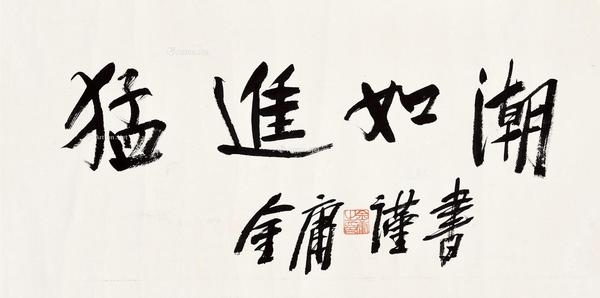 猛進如潮
金庸謹書